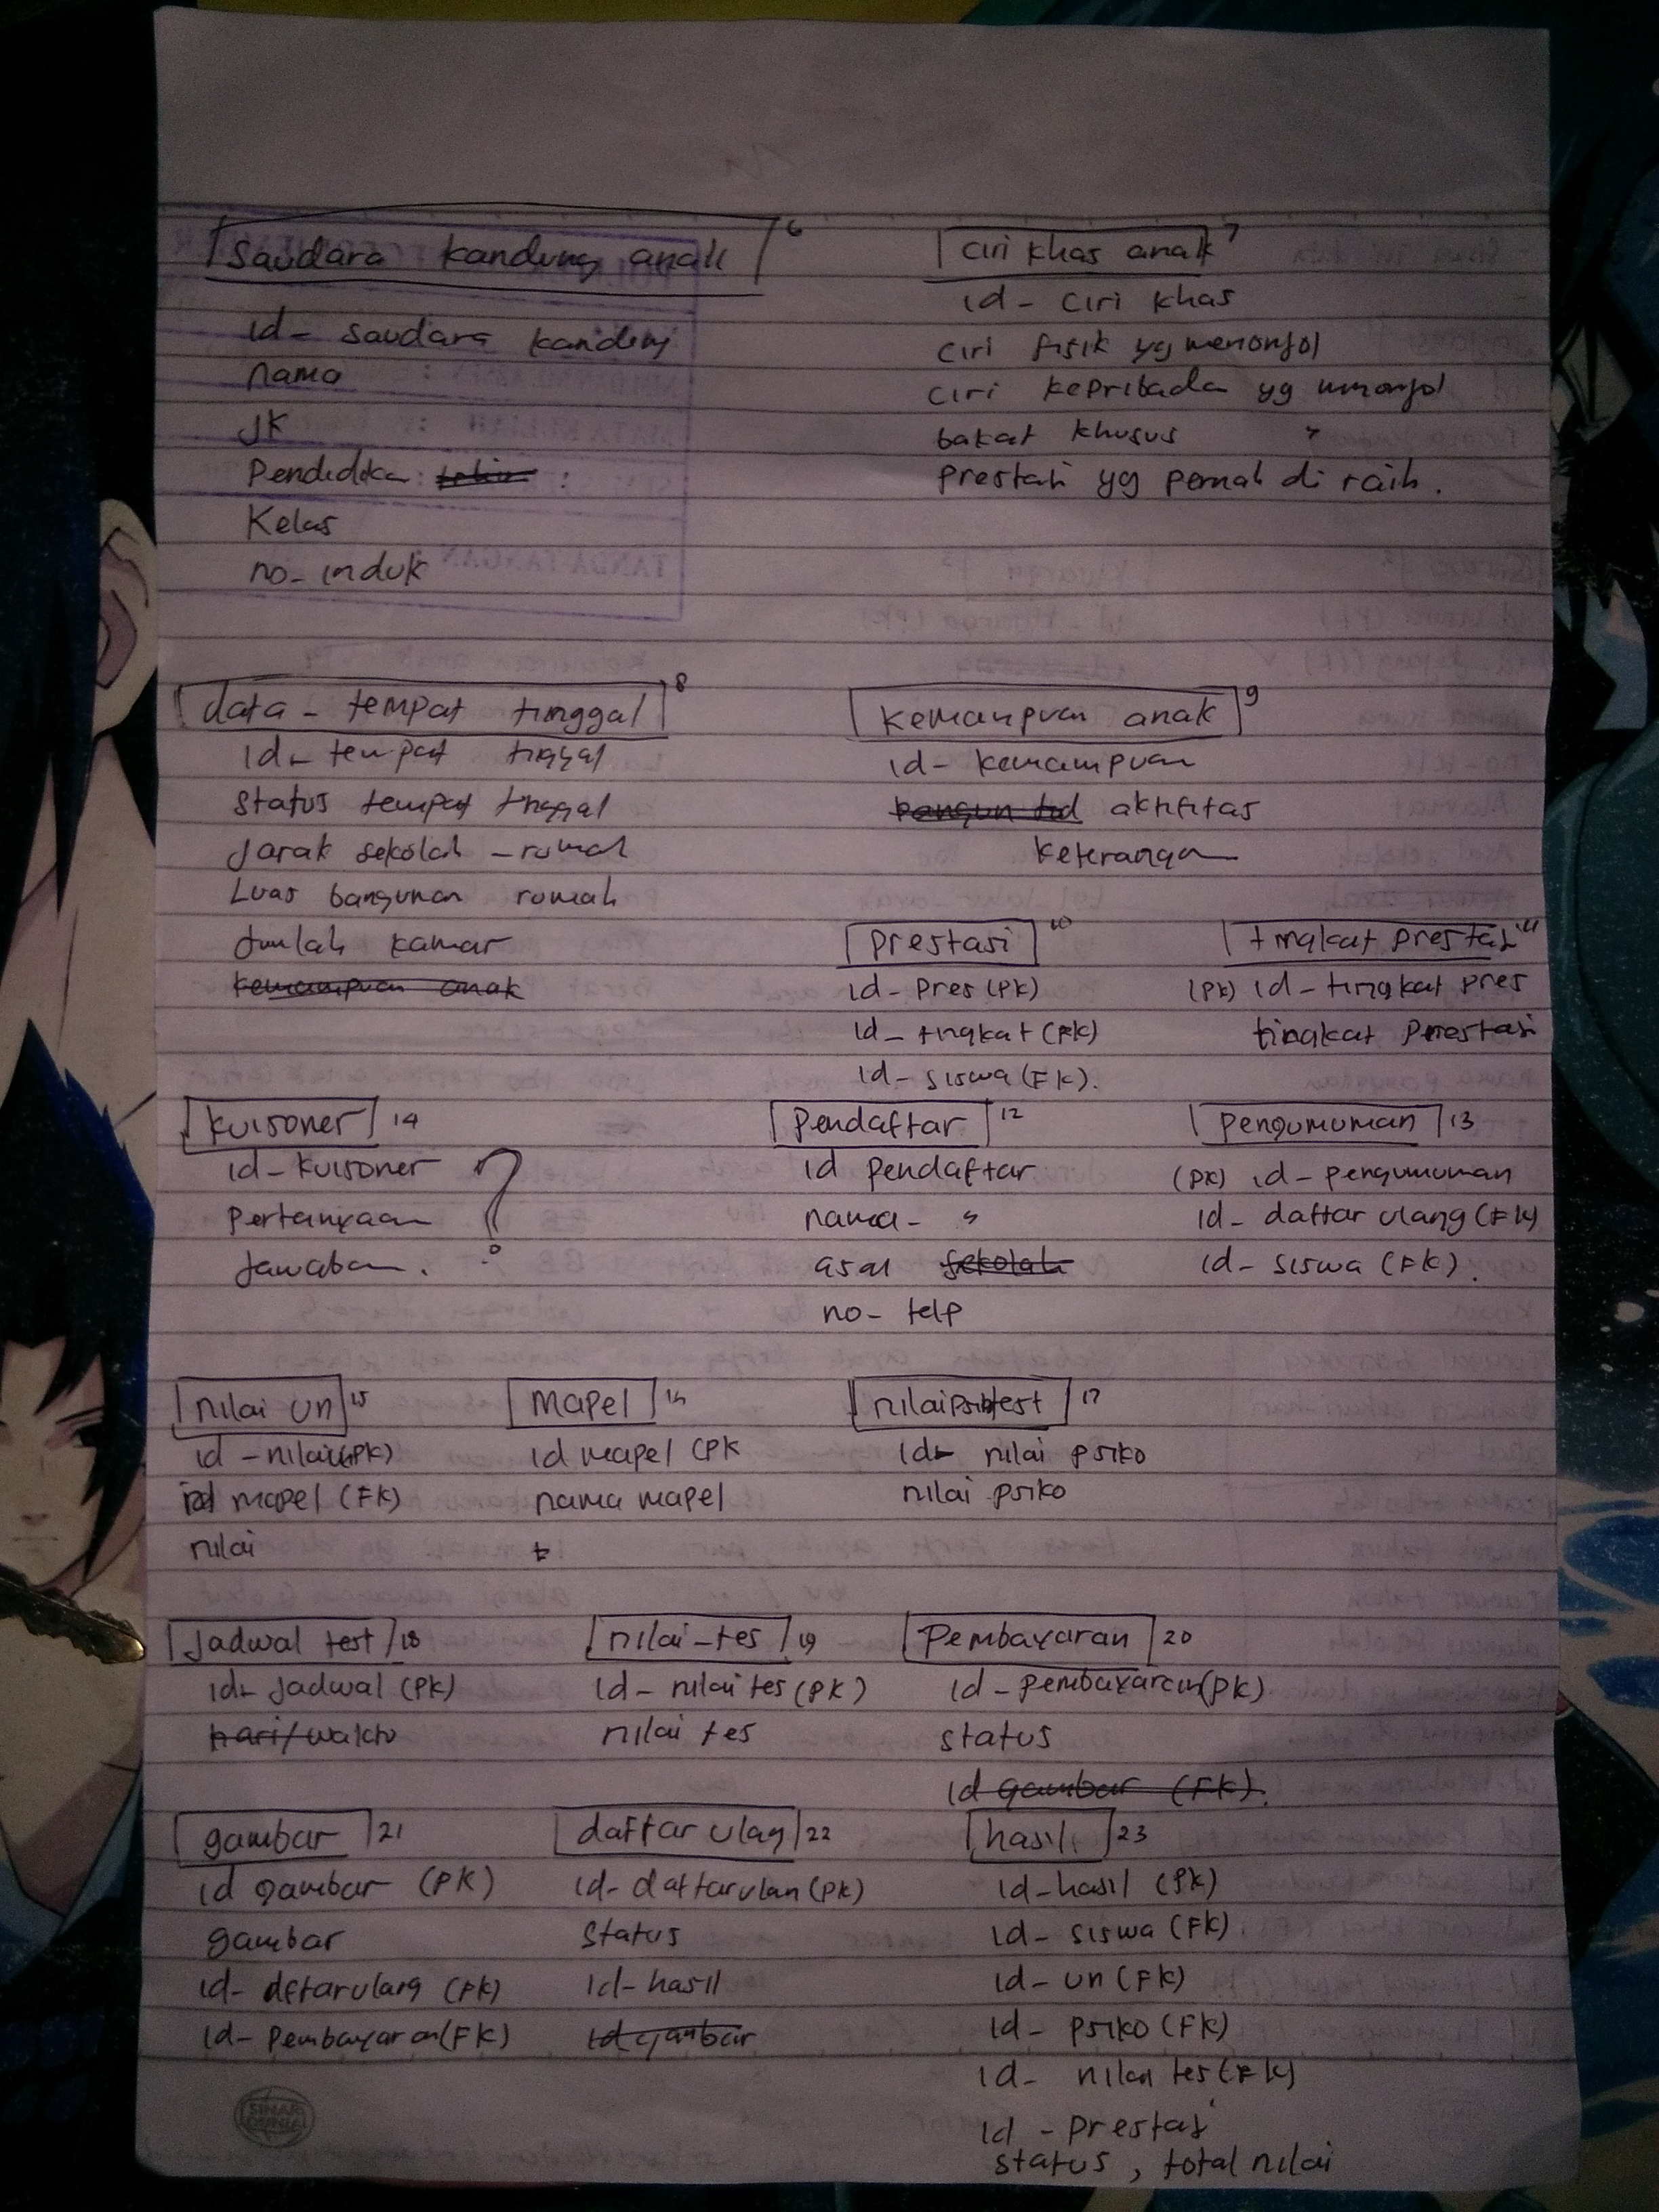 Saudara kandung anak 6
id - saudara kandung
nama
JK
Pendidika :
Kelas
no - induk
ciri khas anak 7
id - ciri khas
ciri fisik yg menonjol
ciri kepribada yg menonjol
bakat khusus "
prestasi yg pernah di raih.
data - tempat tinggal 8
id - tempat tinggal
status tempat tinggal
Jarak sekolah - rumah
Luas bangunan rumah
Jumlah kamar
kemampuan anak
kemampuan anak 9
id - kemampuan
bangun tid aktifitas
keterangan
prestasi 10
id - pres (PK)
id - tingkat (FK)
id - siswa (FK).
tingkat prestasi 11
(PK) id - tingkat pres
tingkat prestasi
kuisoner 14
id - kuisoner ?
pertanyaan
Jawaban.
pendaftar 12
id pendaftar
nama - "
asal sekolah
no - telp
pengumuman 13
(PK) id - pengumuman
id - daftar ulang (FK)
id - siswa (FK).
nilai un 15
id - nilai (PK)
id mapel (FK)
nilai
mapel 16
id mapel (PK
nama mapel
t
nilai test 17
id - nilai psiko
nilai psiko
Jadwal test 18
id - Jadwal (PK)
hari/waktu
nilai - tes 19
id - nilai tes (PK)
nilai tes
pembayaran 20
id - pembayaran (PK)
status
id gambar (FK).
gambar 21
id gambar (PK)
gambar
id - dftarulang (FK)
id - pembayaran (FK)
daftar ulag 22
id - daftarulan (PK)
status
id - hasil
id gambar
hasil 23
id - hasil (PK)
id - siswa (FK)
id - un (FK)
id - psiko (FK)
id - nilai tes (FK)
id - prestasi
status, total nilai
SINAR
DUNIA